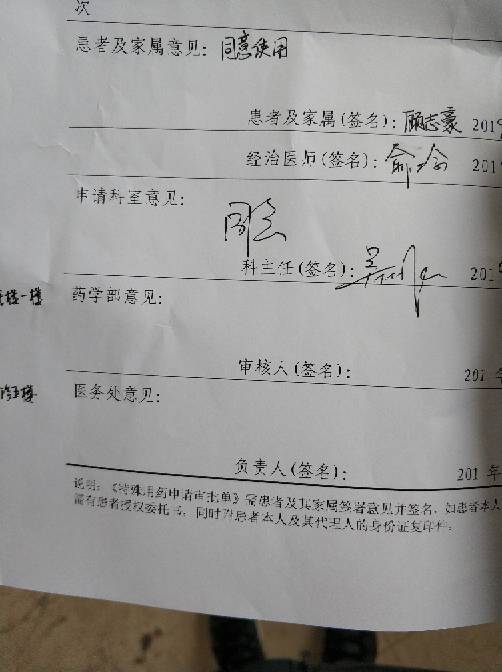 次
患者及家属意见：同意使用
患者及家属(签名)：顾志豪 201
经治医师(签名)：俞 201
申请科室意见：
同意
科主任(签名)：吴 201
一楼 药学部意见：
审核人(签名)： 201 年
五楼 医务处意见：
负责人(签名)： 201 年
说明：《特殊用药申请审批单》需患者及其家属签署意见并签名，如患者本人
需有患者授权委托书，同时附患者本人及其代理人的身份证复印件。